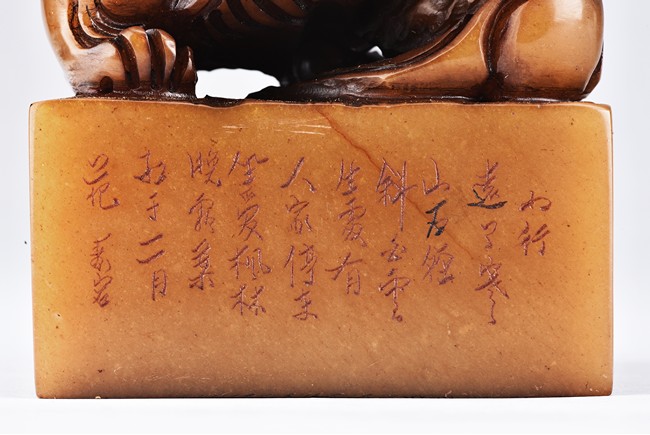 山行
遠上寒
山石徑
斜白雲
生處有
人家停車
坐愛楓林
晚霜葉
紅于二月
花